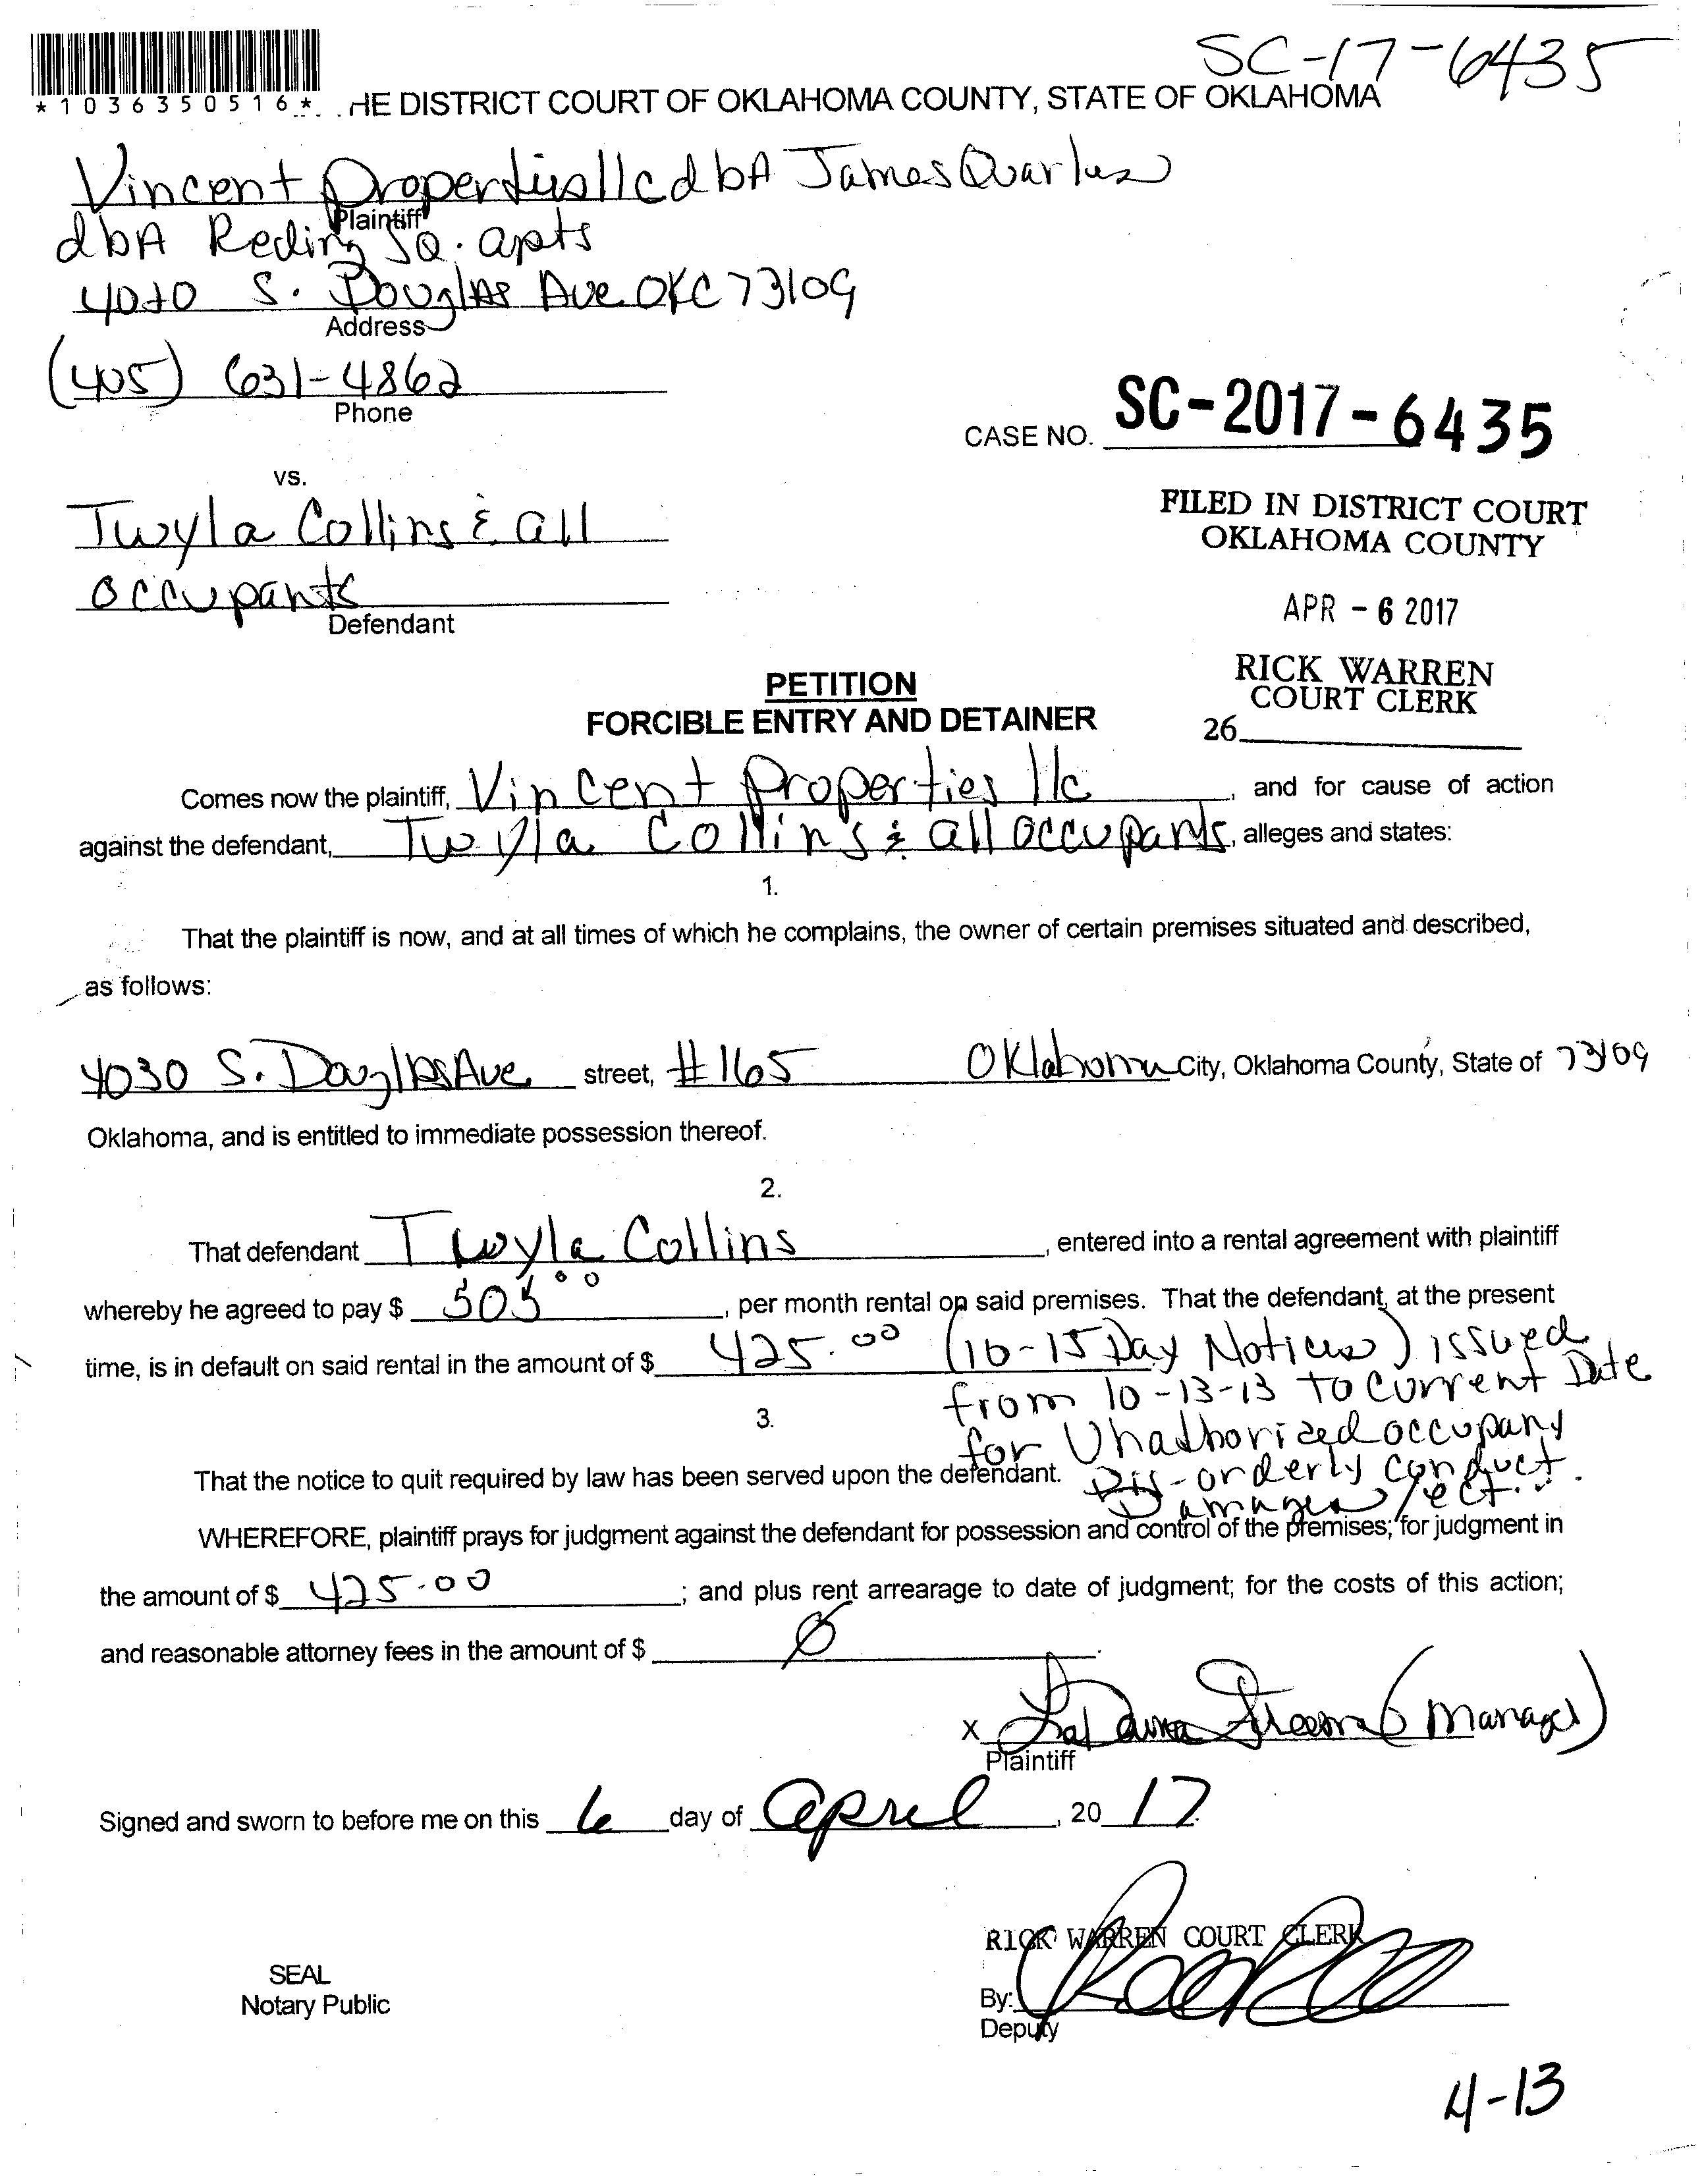 SC-17-6435
*1036350516*
HE DISTRICT COURT OF OKLAHOMA COUNTY, STATE OF OKLAHOMA
Vincent Properties llc dbA James Quarles
Plaintiff
dbA Reding SQ. apts
S. Douglas Ave OKC 73109
Address
(405) 631-4862
Phone
CASE NO. SC-2017-6435
vs.
Twyla Collins & all
occupants
Defendant
FILED IN DISTRICT COURT
OKLAHOMA COUNTY
APR - 6 2017
RICK WARREN
COURT CLERK
26
PETITION
FORCIBLE ENTRY AND DETAINER
Comes now the plaintiff, Vincent Properties llc, and for cause of action
against the defendant, Twyla Collins & all occupants, alleges and states:
1.
That the plaintiff is now, and at all times of which he complains, the owner of certain premises situated and described,
as follows:
4030 S. Douglas Ave street, #165 Oklahoma City, Oklahoma County, State of 73109
Oklahoma, and is entitled to immediate possession thereof.
2.
That defendant Twyla Collins, entered into a rental agreement with plaintiff
whereby he agreed to pay $ 505.00, per month rental on said premises. That the defendant, at the present
time, is in default on said rental in the amount of $ 425.00 (10-15 Day Notices) issued
from 10-13-13 to current Date
3.
for Unathorized occupany
That the notice to quit required by law has been served upon the defendant. Dis-orderly conduct.
Damages/ect...
WHEREFORE, plaintiff prays for judgment against the defendant for possession and control of the premises; for judgment in
the amount of $ 425.00; and plus rent arrearage to date of judgment; for the costs of this action;
and reasonable attorney fees in the amount of $ Ø.
x (manager)
Plaintiff
Signed and sworn to before me on this 6 day of April, 20 17.
RICK WARREN COURT CLERK
SEAL
Notary Public
By:
Deputy
4-13